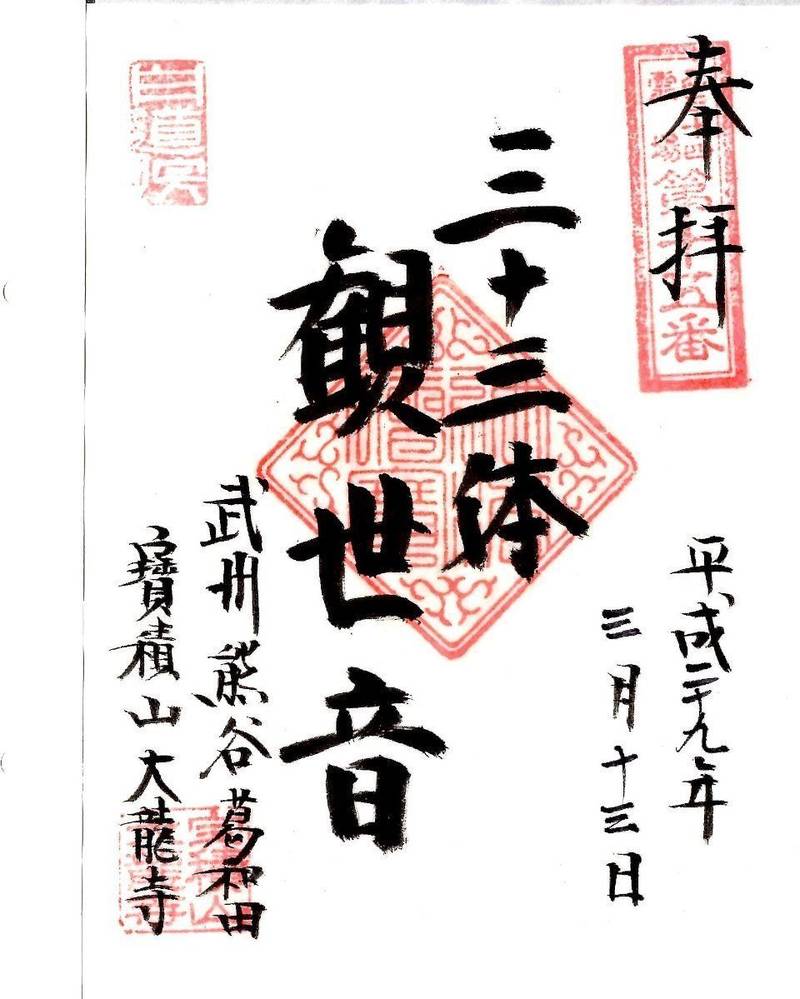 奉拝
平成二十九年
三月十三日
三十三体
観世音
武州熊谷葛和田
寶積山大龍寺